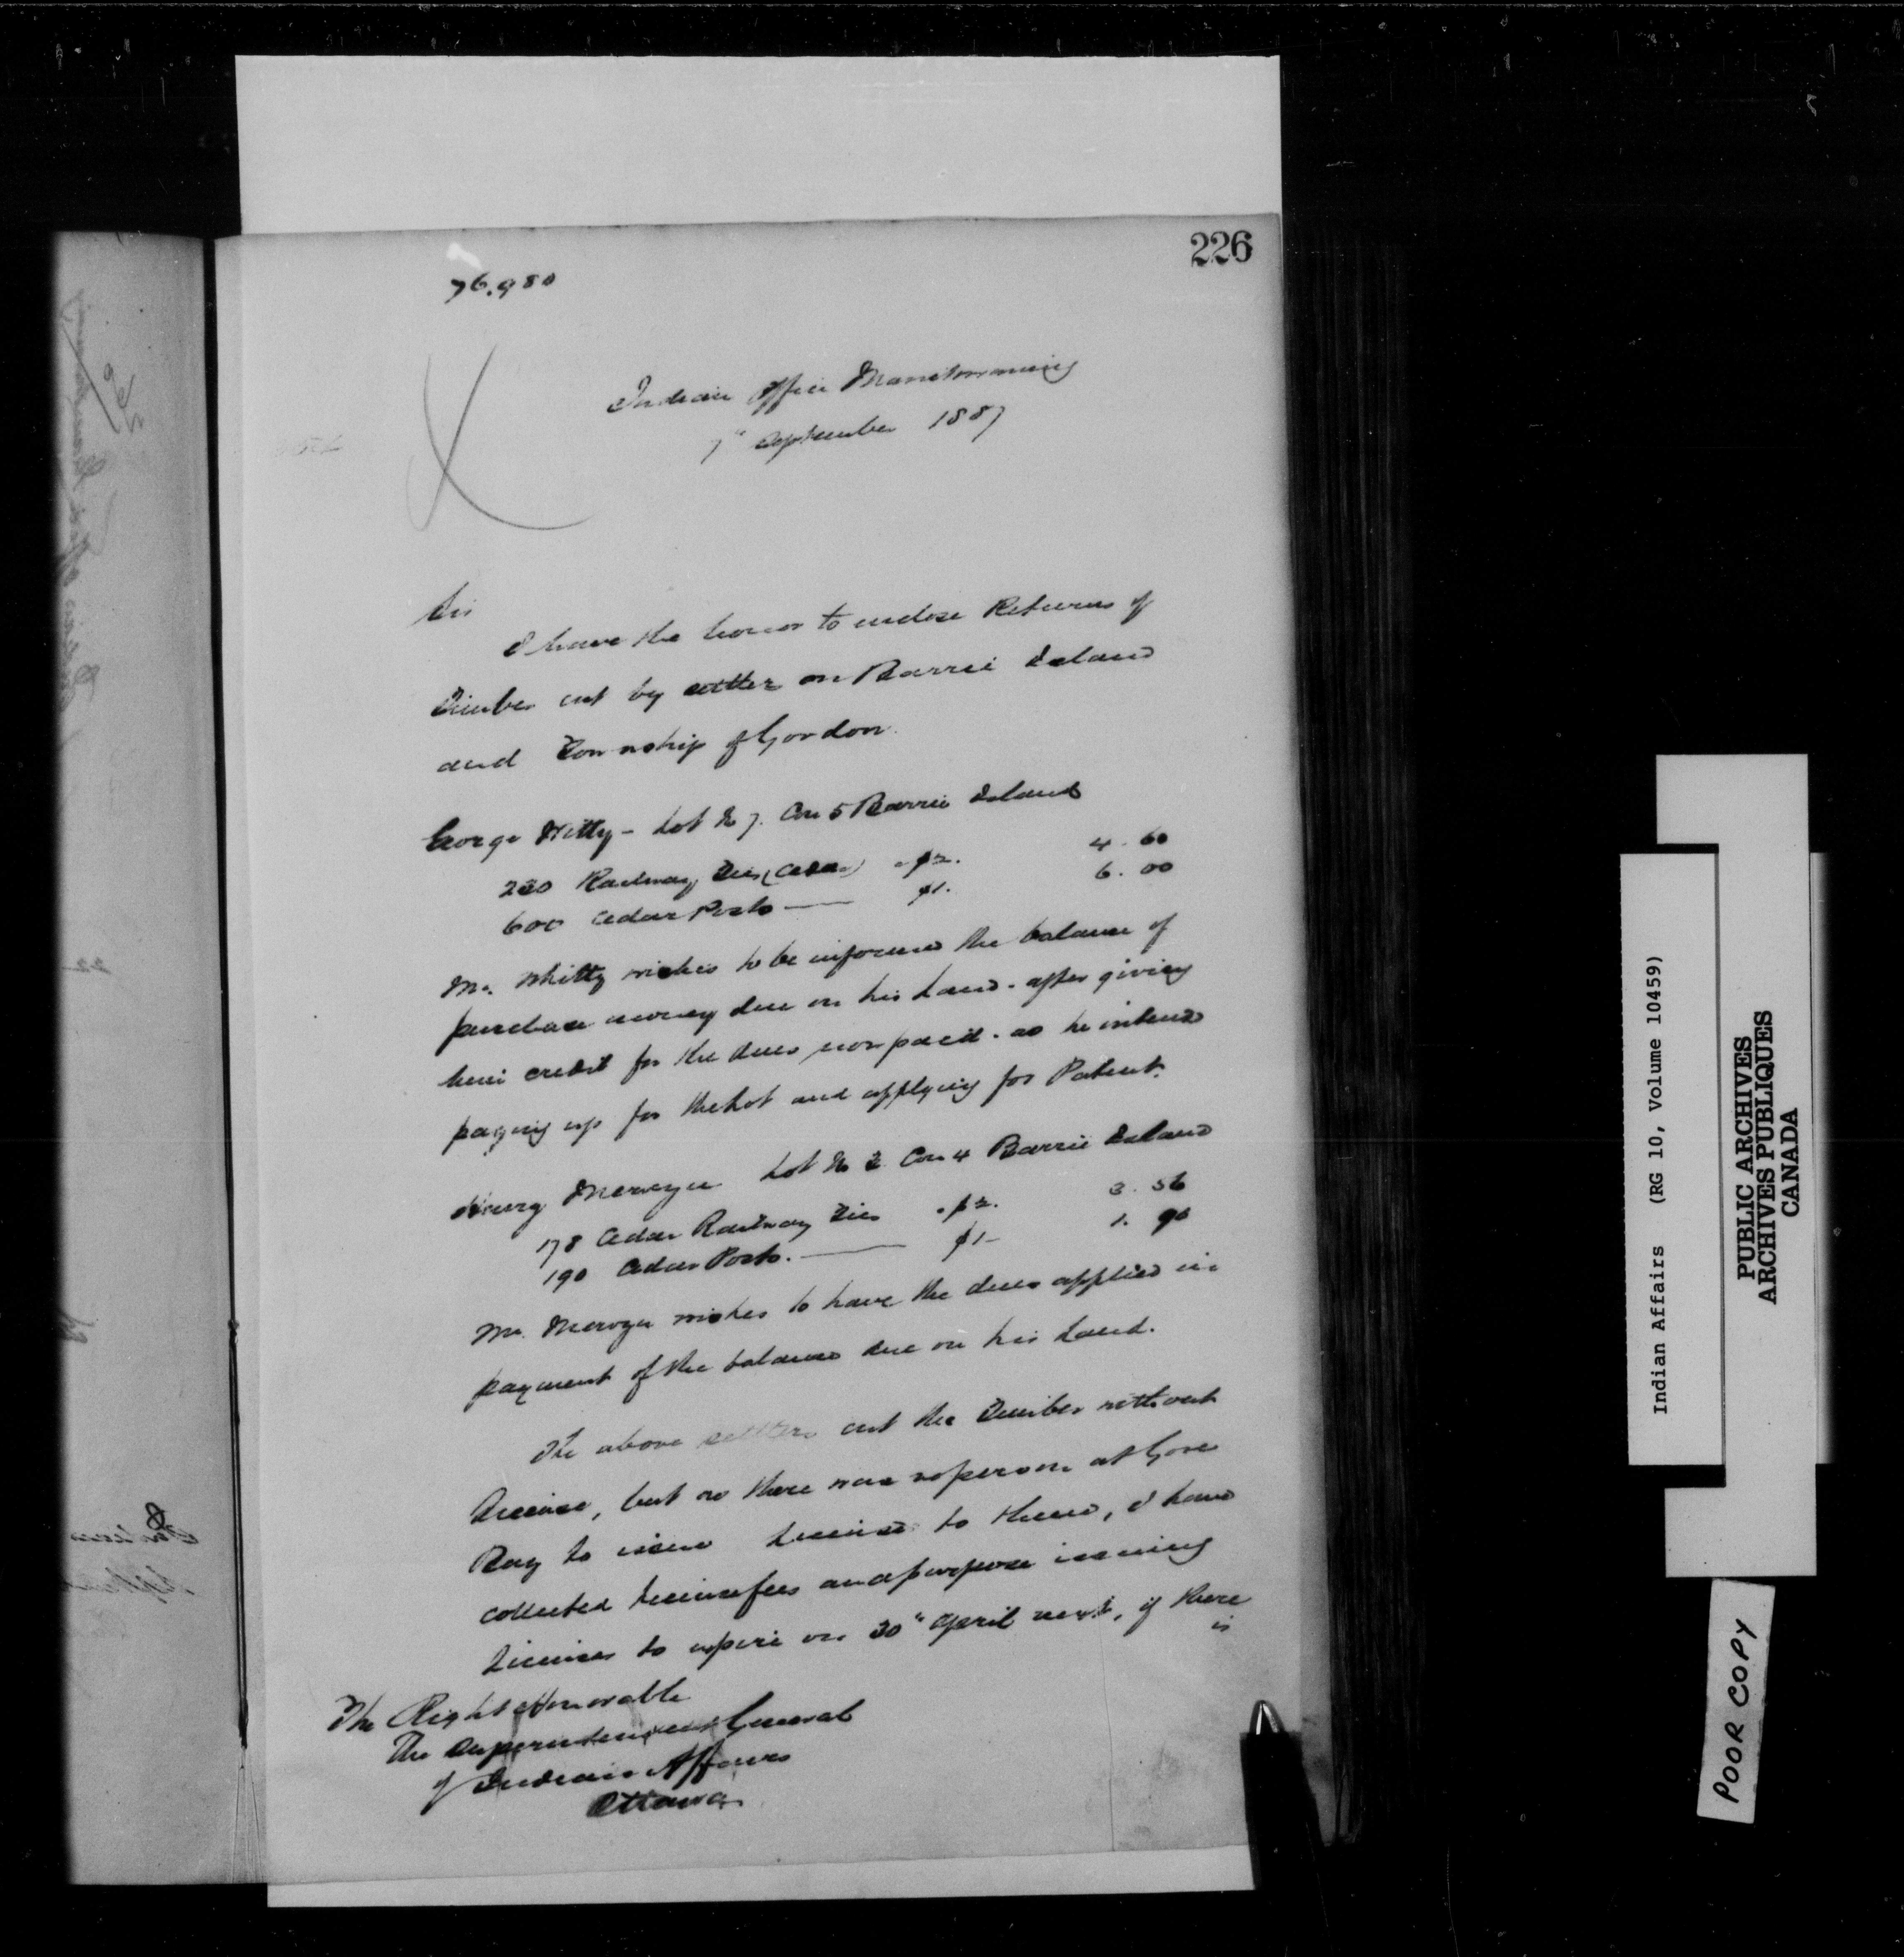 226
76.980
Indian Office Manitowaning
7" September 1887
Sir
I have the honor to enclose Returns of
Timber cut by settlers on Barrie Island
and Township of Gordon.
George Witty - Lot No 7. Con 5 Barrie Island
230 Railway Ties (Cedar) 4.60
600 Cedar Posts — 6.00
Mr. Whitty wishes to be informed the balance of
purchase money due on his Land. after giving
him credit for the dues now paid. as he intends
paying up for the Lot and applying for Patent.
Lot No 2 Con 4 Barrie Island
178 Cedar Railway Ties 3.56
190 Cedar Posts. — 1.90
Mr. wishes to have the dues applied in
payment of the balance due on his Land.
The above settlers cut the Timber without
License, but as there was no person at Gore
Bay to issue Licenses to them, I have
collected License fees and purpose issuing
Licenses to expire on 30" April next, if there
is
The Right Honorable
The Superintendent General
of Indian Affairs
Ottawa
Indian Affairs (RG 10, Volume 10459)
PUBLIC ARCHIVES
ARCHIVES PUBLIQUES
CANADA
POOR COPY